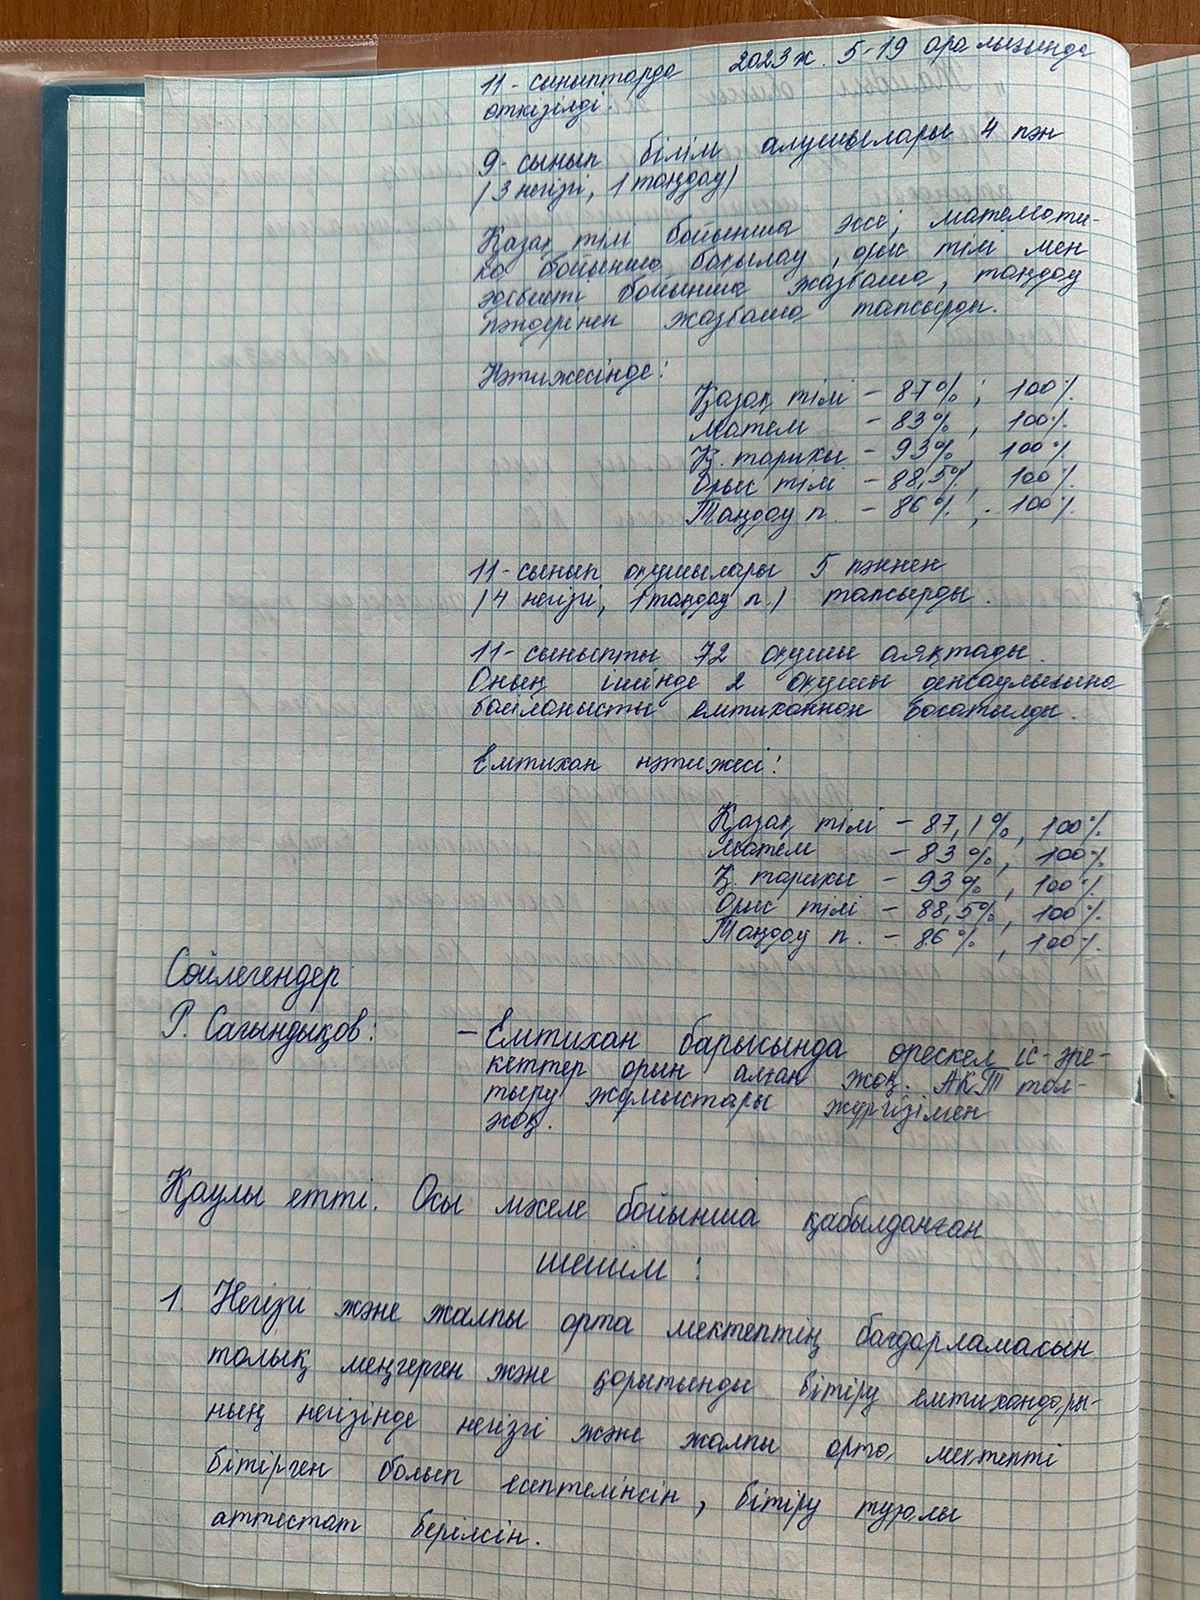 11-сыныптарда 2023ж. 5-19 аралығында
өткізілді.
9-сынып білім алушылары 4 пән
(3 негізгі, 1 таңдау)
Қазақ тілі бойынша эссе, математи-
ка бойынша бақылау, орыс тілі мен
әдебиеті бойынша жазбаша, таңдау
пәндерінен жазбаша тапсырды.
Нәтижесінде:
Қазақ тілі - 87%; 100%
Матем - 83%, 100%
Қ. тарихы - 93%, 100%
Орыс тілі - 88,5%, 100%
Таңдау п. - 86%, 100%
11-сынып оқушылары 5 пәннен
(4 негізгі, 1 таңдау п.) тапсырды.
11-сыныпты 72 оқушы аяқтады.
Оның ішінде 2 оқушы денсаулығына
байланысты емтиханнан босатылды.
Емтихан нәтижесі:
Қазақ тілі - 87,1%, 100%
Матем - 83%, 100%
Қ. тарихы - 93%, 100%
Орыс тілі - 88,5%, 100%
Таңдау п. - 86%, 100%.
Сөйлегендер
Р. Сағындықов: - Емтихан барысында өрескел іс-әре-
кеттер орын алған жоқ. АКТ тол-
тыру жұмыстары жүргізілген
жоқ.
Қаулы етті. Осы мәселе бойынша қабылданған
шешім:
1. Негізгі және жалпы орта мектептің бағдарламасын
толық меңгерген және қорытынды бітіру емтихандары-
ның негізінде негізгі және жалпы орта мектепті
бітірген болып есептелінсін, бітіру туралы
аттестат берілсін.